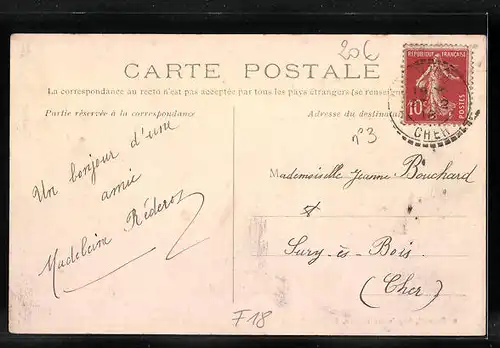 20€
CARTE POSTALE
RÉPUBLIQUE FRANÇAISE
10
POSTES
CHER
La correspondance au recto n'est pas acceptée par tous les pays étrangers (se renseign
Partie réservée à la correspondance
Adresse du destinat
n°3
Un bonjour d'une
amie
Madeleine
Mademoiselle Jeanne Bouchard
à
Sury-ès-Bois
(Cher)
F18